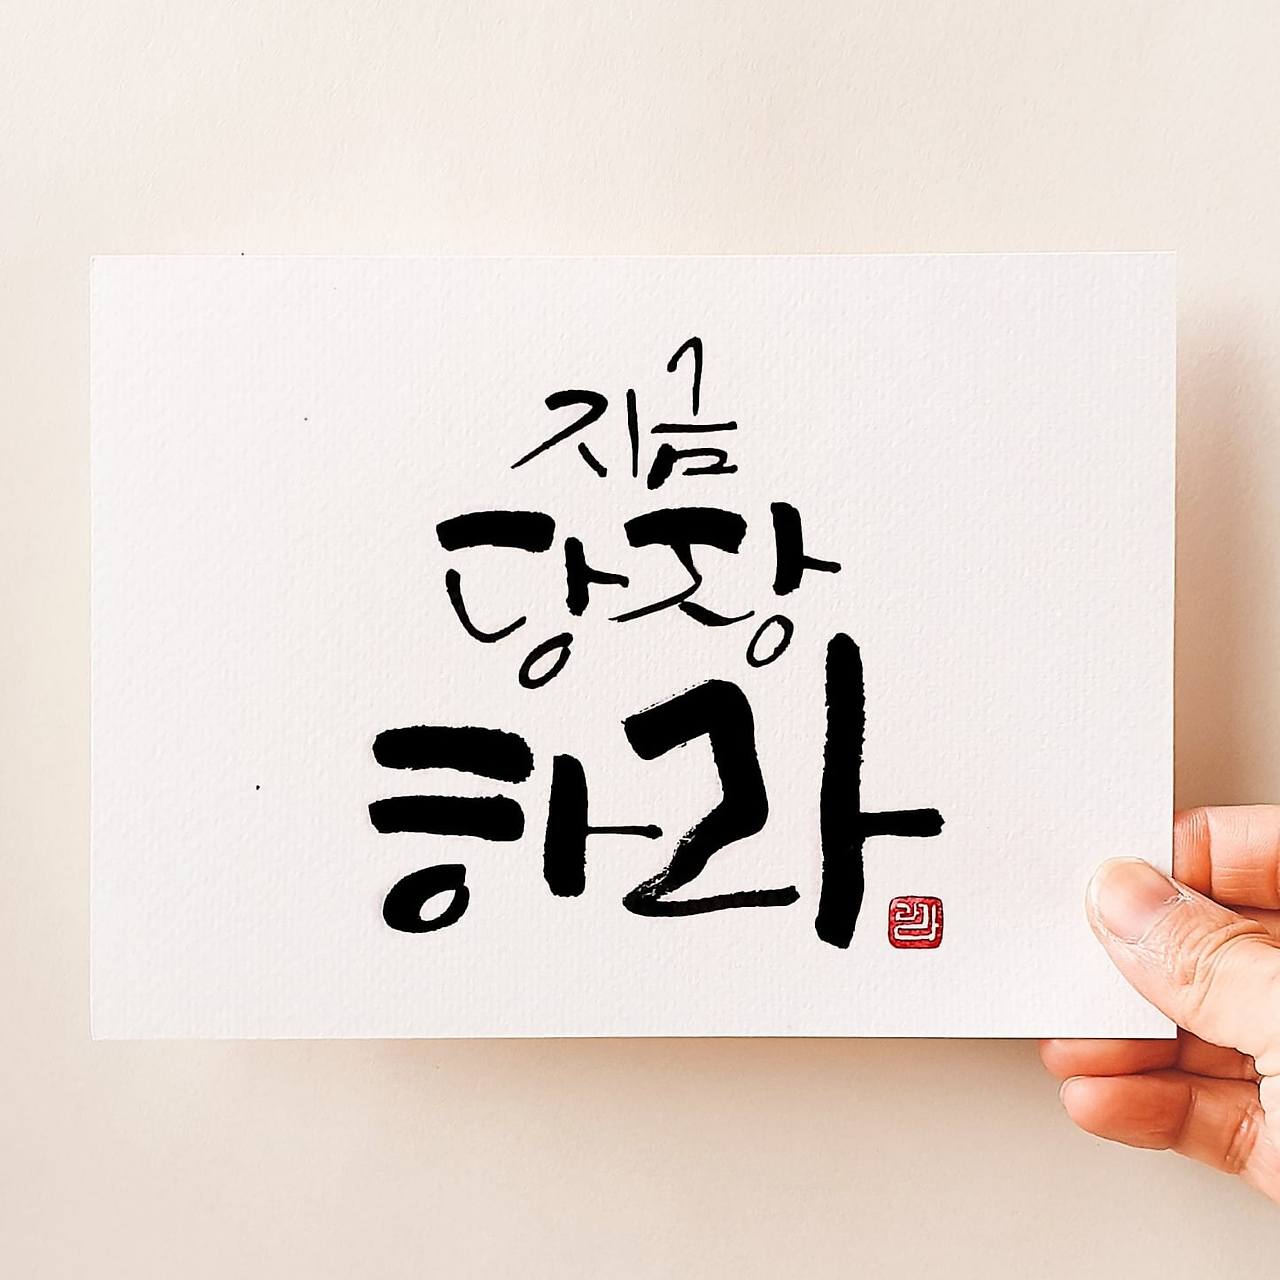 지금
당장
하라